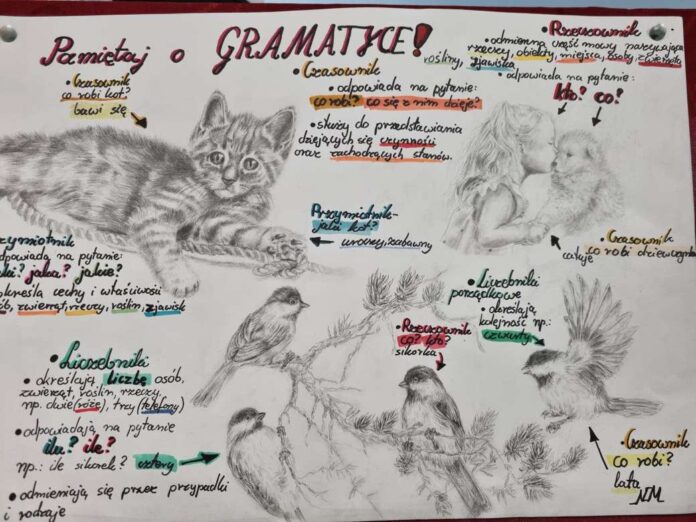 Pamiętaj o GRAMATYCE!
• Czasownik
co robi kot?
bawi się
• Czasownik
• odpowiada na pytanie:
co robi? co się z nim dzieje?
• służy do przedstawiania
dziejących się czynności
oraz zachodzących stanów.
• Rzeczownik
• odmienna część mowy nazywająca
rzeczy, obiekty, miejsca, osoby, zwierzęta
rośliny, zjawiska
• odpowiada na pytanie:
kto? co?
Przymiotnik-
jaki kot?
uroczy, zabawny
• Czasownik
co robi dziewczynka
całuje
zymiotnik
dpowiada na pytanie:
aki? jaka? jakie?
określa cechy i właściwości
ób, zwierząt, rzeczy, roślin, zjawisk
• Liczebniki
• określają liczbę osób,
zwierząt, roślin, rzeczy,
np. dwie (róże), trzy (telefony)
• odpowiadają na pytanie
ilu? ile?
np.: ile sikorek? cztery
• odmieniają się przez przypadki
i rodzaje
• Rzeczownik
co? kto?
sikorka
• Liczebniki
porządkowe
• określają
kolejność np.:
czwarty
• Czasownik
co robi?
lata
NM